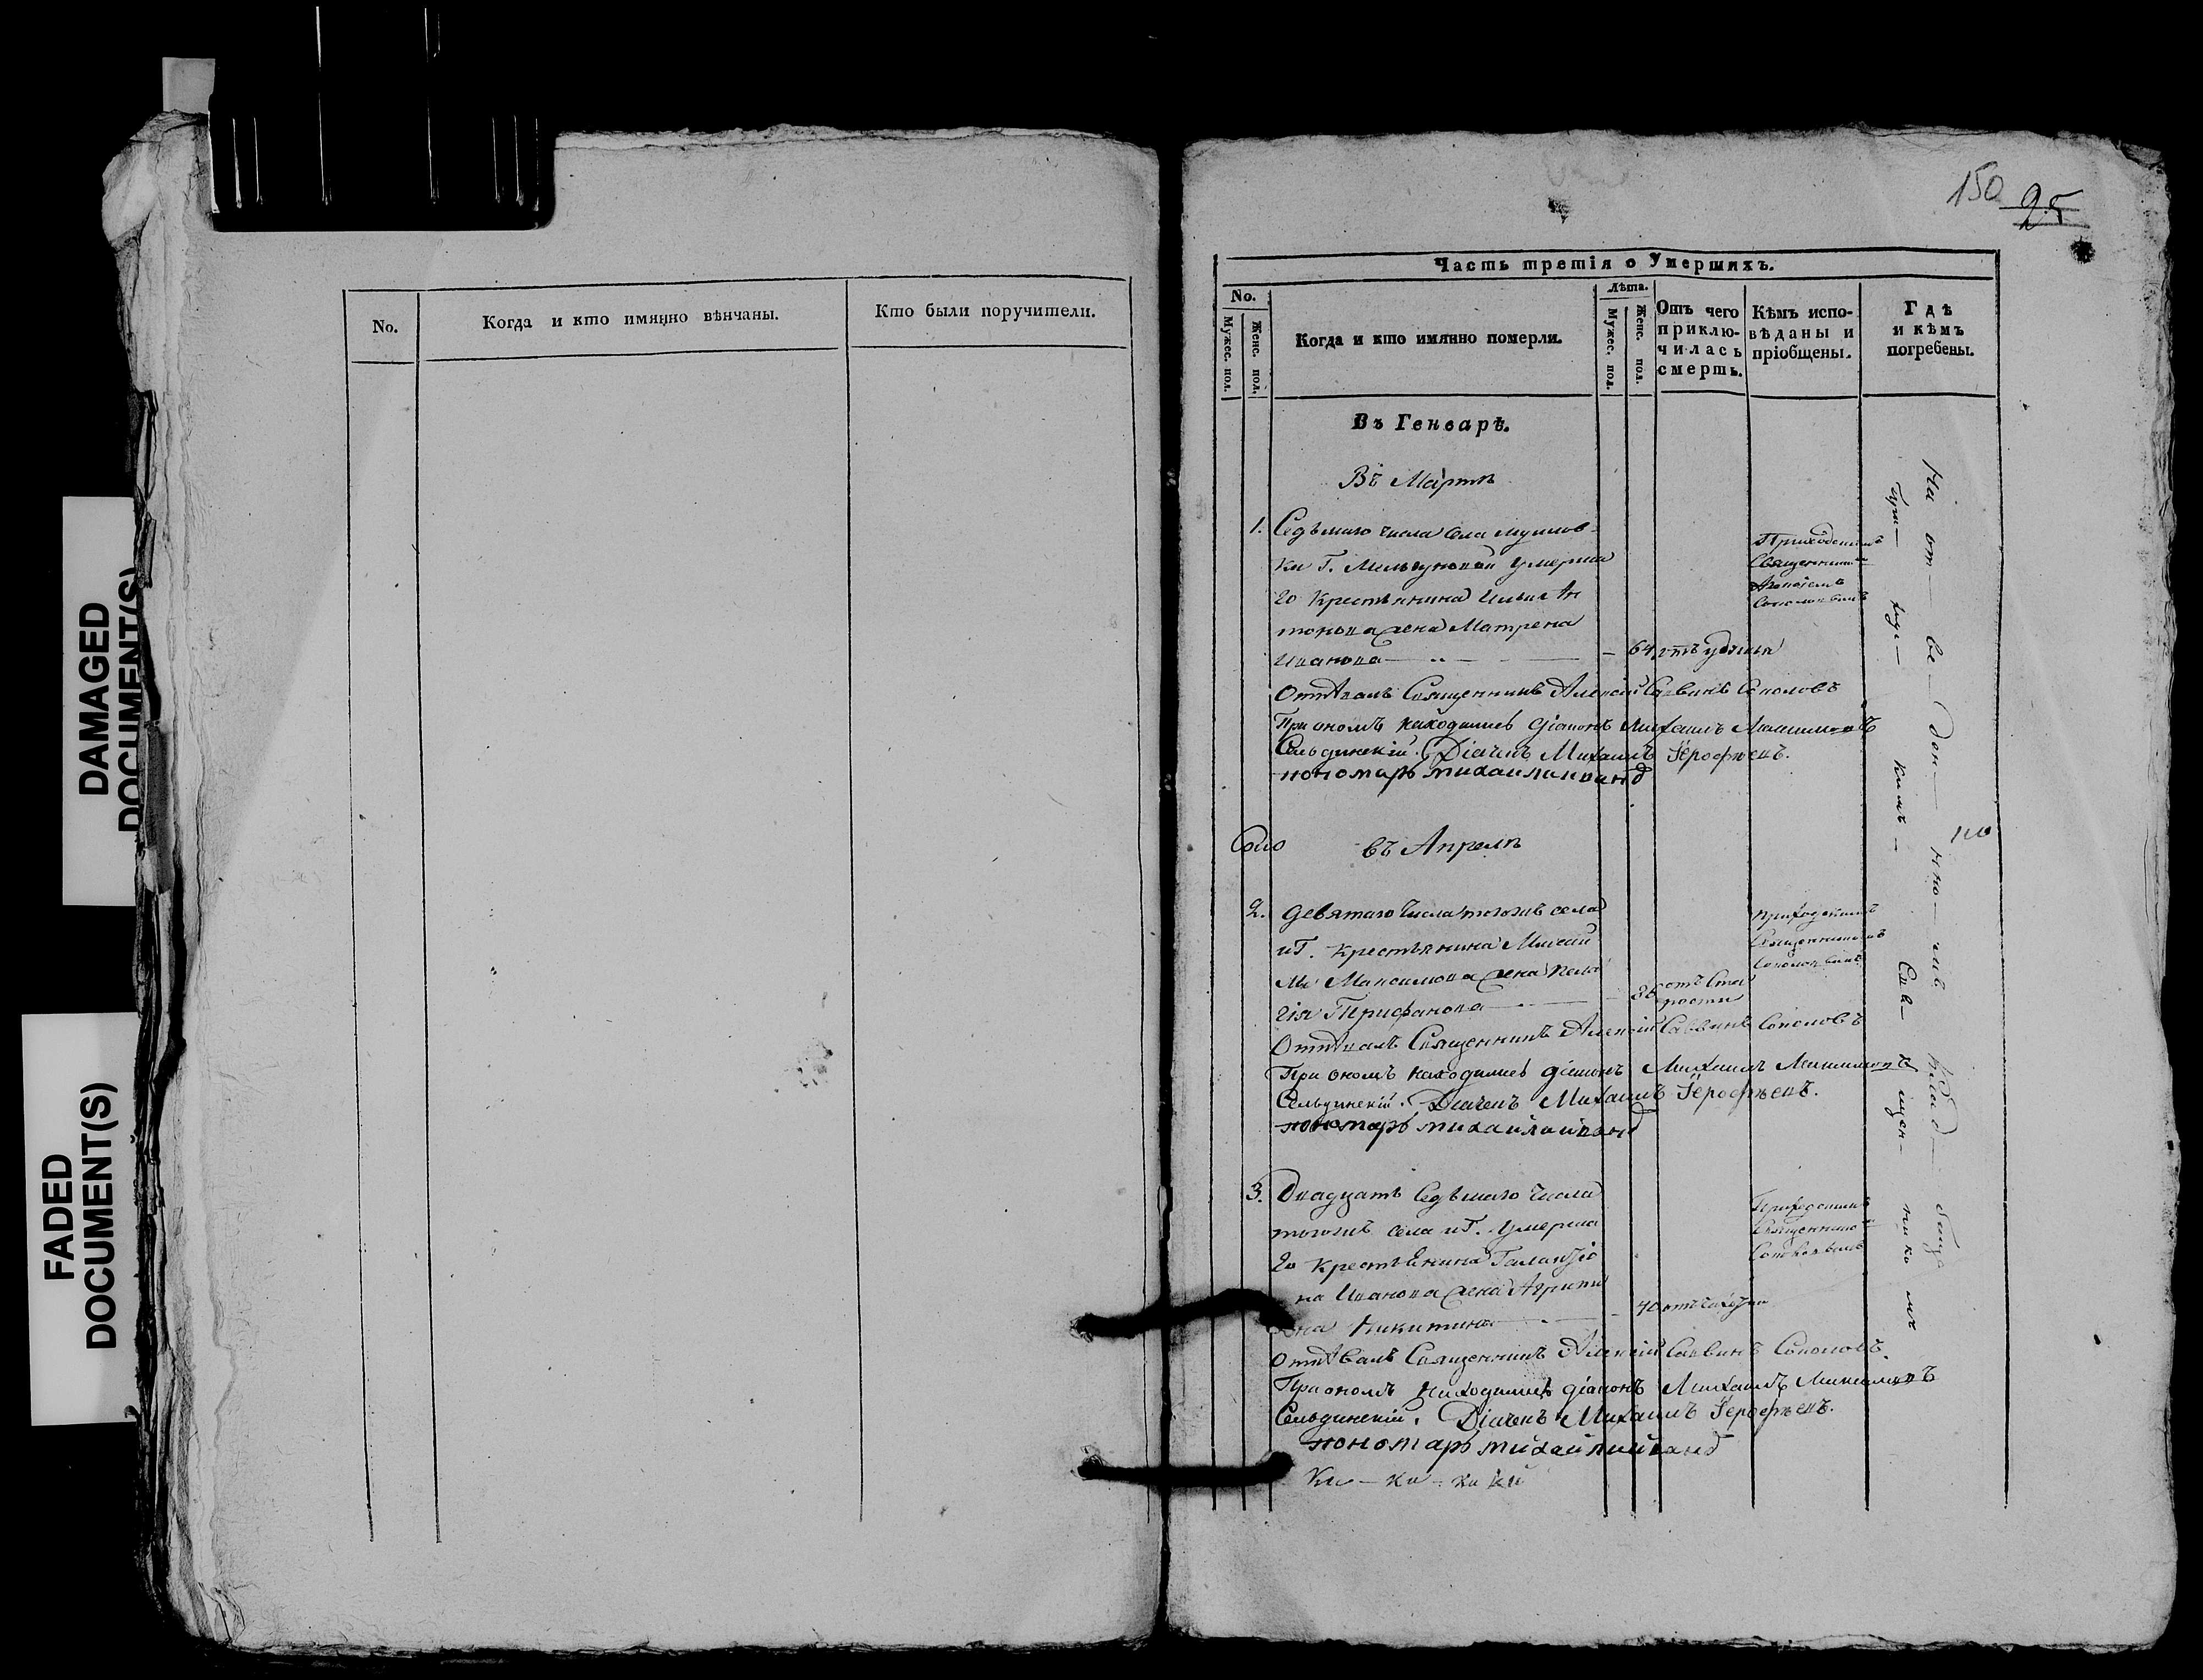 DAMAGED
DOCUMENT(S)
FADED
DOCUMENT(S)
No.
Когда и кто имянно вѣнчаны.
Кто были поручители.
150 25
Часть третія о Умершихъ.
No.
Мужес. пол.
Женс. пол.
Когда и кто имянно померли.
Лѣта.
Мужес. пол.
Женс. пол.
Отъ чего
приклю-
чилась
смерть.
Кѣмъ испо-
вѣданы и
пріобщены.
Гдѣ
и кѣмъ
погребены.
Въ Генварѣ.
Въ Мартѣ
1. Седьмаго числа села
ки Г. умерша
го Крестьянина Ильи Ан
тонова жена Матрена
Иванова — 64
Приходскимъ
Священник
Алексіемъ
Соколовымъ
Отпѣвалъ Священникъ Алексій Саввинъ Соколовъ
При ономъ находились діаконъ Михаилъ Максимовъ
Сельдинскій. Діачекъ Михаилъ Іерофѣевъ.
пономарь михаил иванд
въ Апрелѣ
2. девятаго числа тогожъ села
и Г. крестьянина Михаи
лы Максимова жена Пела
гія Трифанова — отъ Ста
рости
приходскимъ
Священникомъ
Соколовымъ
Отпѣвалъ Священникъ Алексій Саввинъ Соколовъ
При ономъ находились діаконъ Михаилъ Максимовъ
Сельдинскій. Діачекъ Михаилъ Іерофѣевъ.
пономарь михаил иванд
3. Двадцать Седьмаго числа
тогожъ села и Г. умерша
го крестьянина
на Иванова жена Агрипи
на Никитина — 40 отъ чахотки
Приходскимъ
Священнико
Соколовымъ
Отпѣвалъ Священникъ Алексій Саввинъ Соколовъ.
При ономъ находились діаконъ Михаилъ Максимовъ
Сельдинскій. Діачекъ Михаилъ Іерофѣевъ.
пономарь михаил иванд
На от — ве — ден — но — мъ клад — бище
при — ход — скимъ — Свя — щен — нико мъ